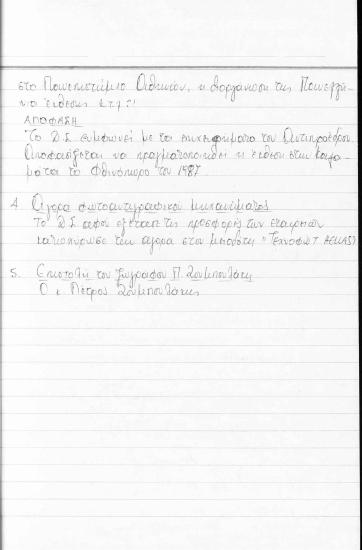 στο Πανεπιστήμιο Αθηνών, η διοργάνωση της Πανελλή-
νια έκθεσης κ.τ.λ.
ΑΠΟΦΑΣΗ
Το Δ.Σ. συμφωνεί με τα επιχειρήματα του Αντιπροέδρου
Αποφασίζεται να πραγματοποιηθεί η έκθεση στην
το Φθινόπωρο του 1987
4. Αγορά φωτοαντιγραφικού μηχανήματος
Το Δ.Σ αφού εξέτασε τις προσφορές των εταιρειών
κατοχύρωσε την αγορά στον μειοδότη "ΤΕΧΝΟΦΩΤ
5. Επιστολή του ζωγράφου Π. Ζουμπουλάκη
Ο κ. Πέτρος Ζουμπουλάκης